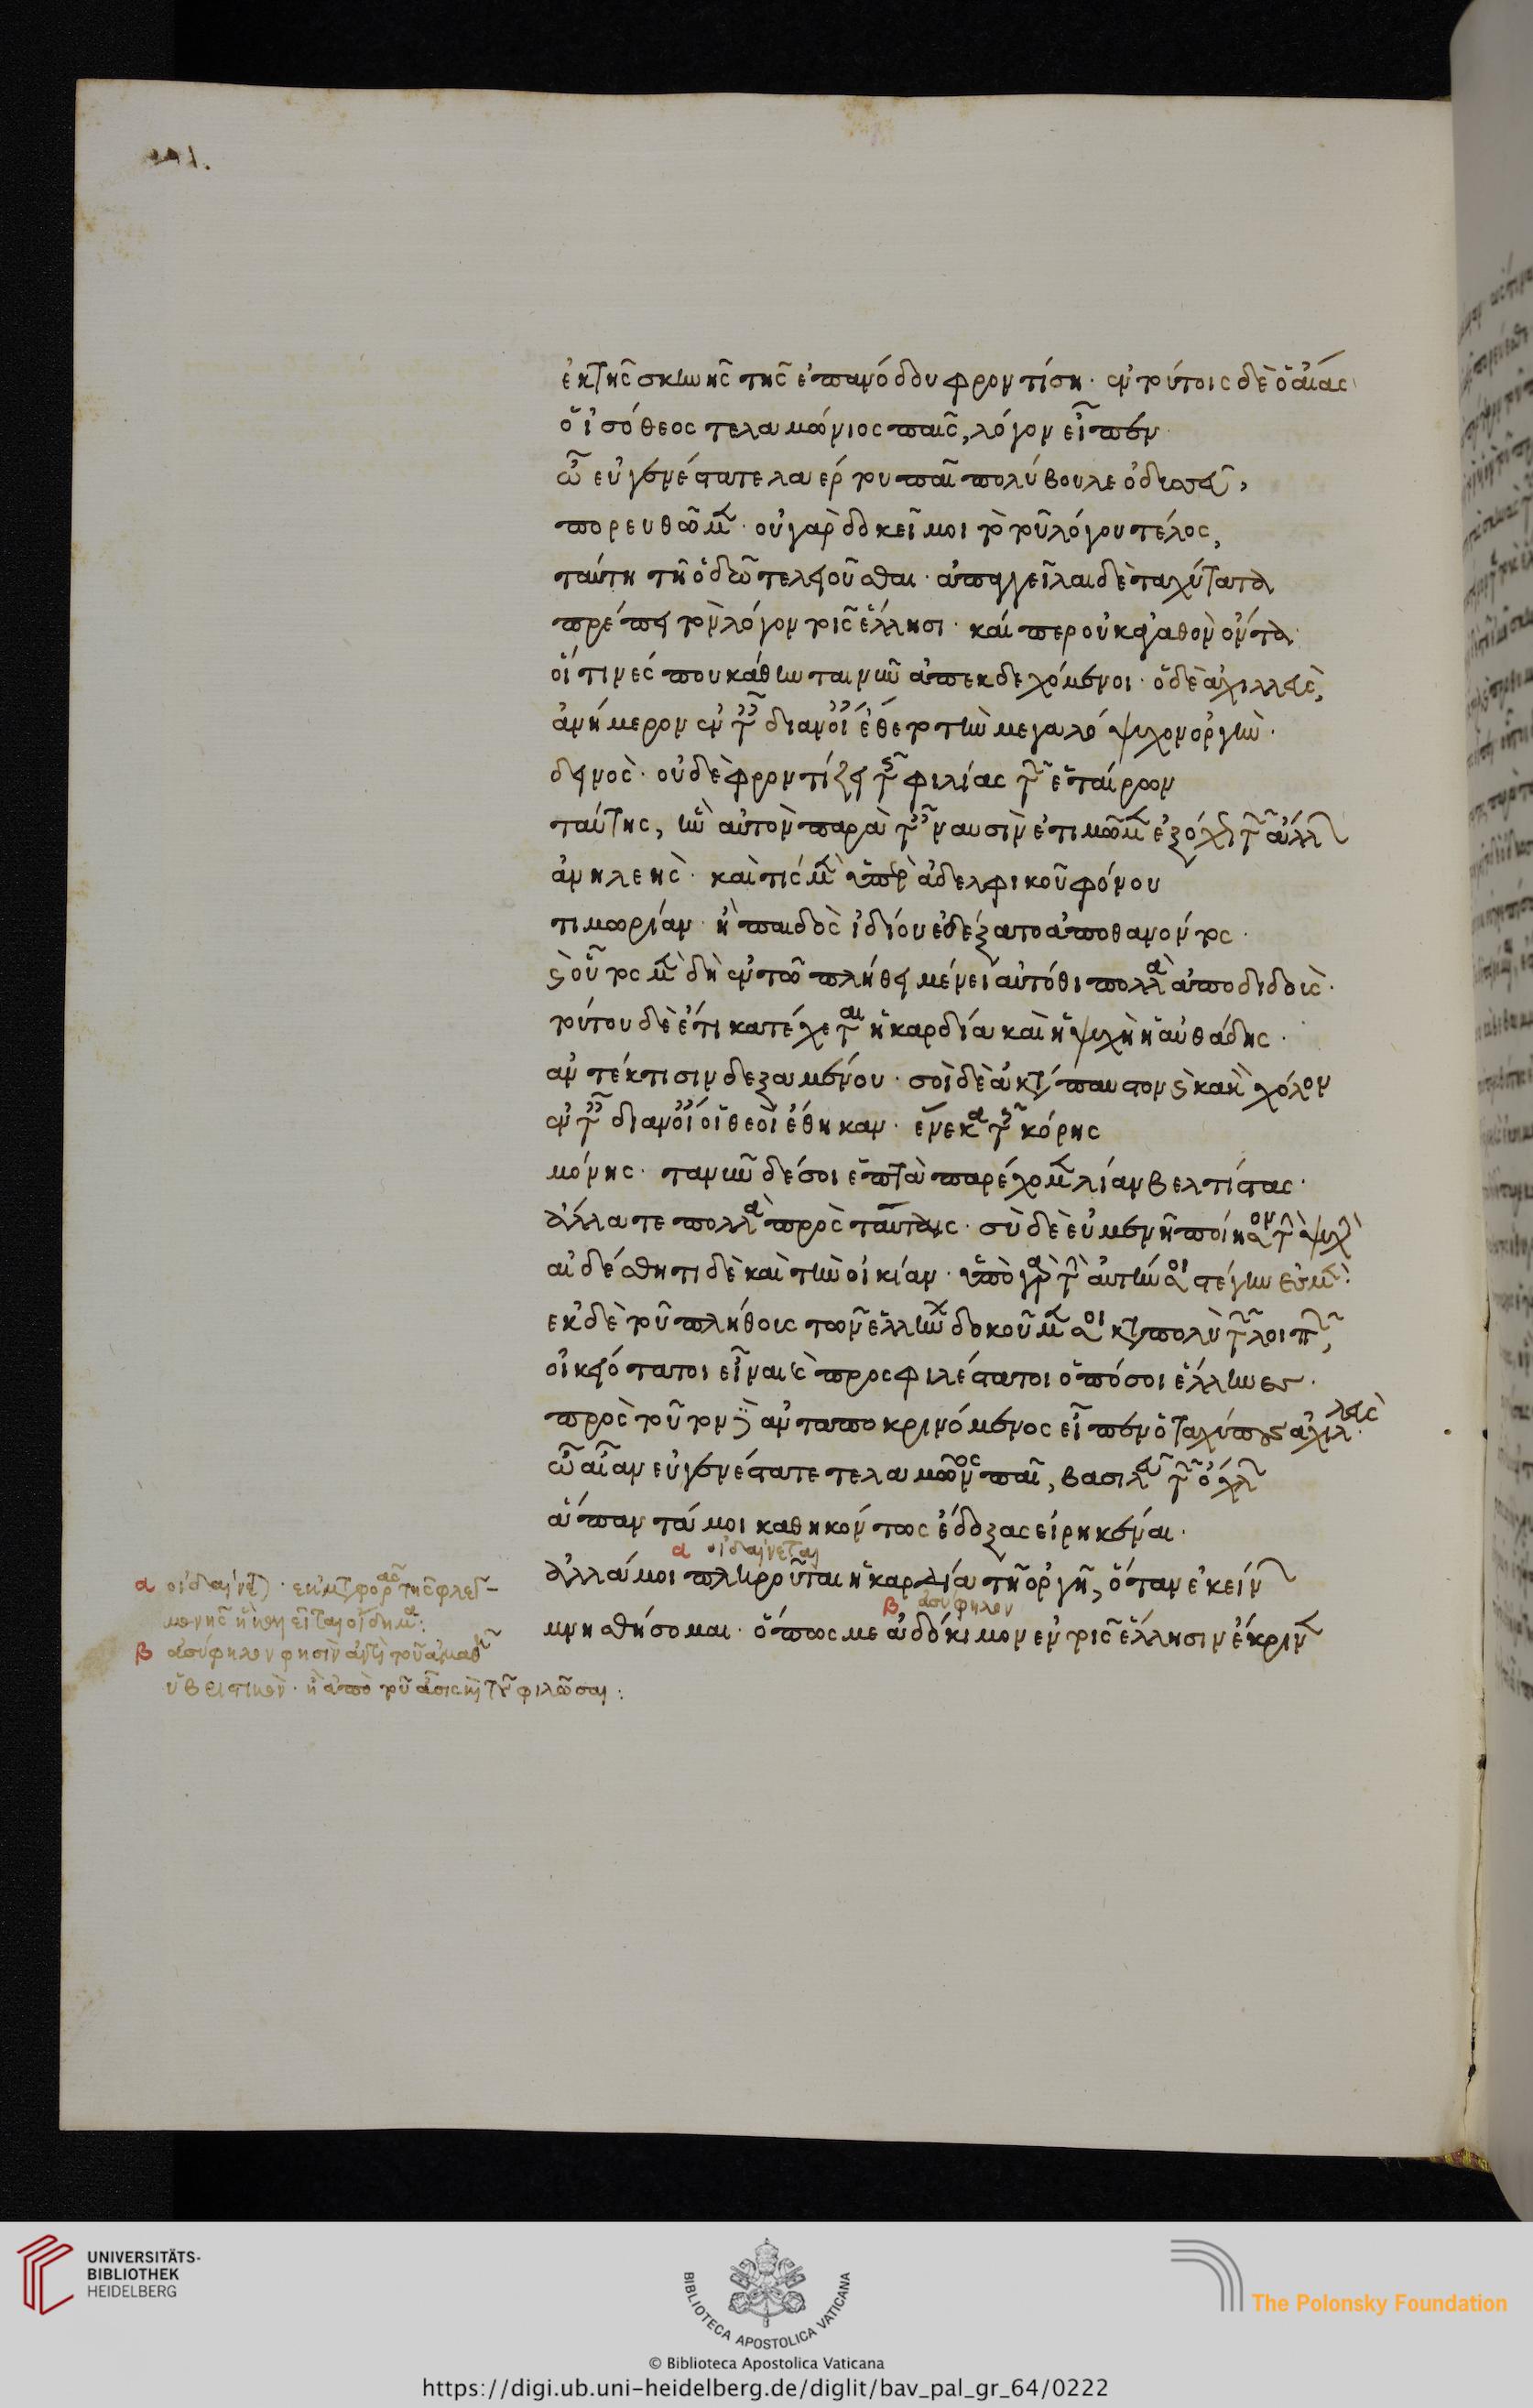 ἐκ τῆς σκηνῆς τῆς ἐπανόδου φροντίση· ἐν τούτοις δὲ ὁ αἴας
ὁ ἰσόθεος τελαμώνιος παῖς, λόγον εἶπεν
ὦ εὐγενέστατε λαέρτου παῖ πολύβουλε ὀδυσσεῦ,
πορευθῶμεν· οὐ γὰρ δοκεῖ μοι τὸ τοῦ λόγου τέλος,
ταύτη τῆ ὁδῶ τελειοῦσθαι· ἀπαγγεῖλαι δὲ ταχύτατα
πρέπει τὸν λόγον τοῖς ἕλλησι· καί περ οὐκ ἀγαθὸν ὄντα
οἵ τινές που κάθηνται νῦν ἀπεκδεχόμενοι· ὁ δὲ ἀχιλλεὺς,
ἀνήμερον ἐν τῆ διανοία ἔθετο τὴν μεγαλόψυχον ὀργὴν·
δεινὸς· οὐδὲ φροντίζει τῆς φιλίας τῶν ἑταίρων
ταύτης, ἣν αὐτὸν παρὰ ταῖς ναυσὶν ἐτιμῶμεν ἐξόχως τῶν ἄλλων
ἀνηλεὴς· καὶ τὶς μὲν ὑπὲρ ἀδελφικοῦ φόνου
τιμωρίαν ἢ παιδὸς ἰδίου ἐδέξατο ἀποθανόντος·
καὶ οὗτος μὲν δὴ ἐν τῶ πλήθει μένει αὐτόθι πολλὰ ἀποδιδοὺς·
τούτου δὲ ἔτι κατέχεται ἡ καρδία καὶ ἡ ψυχὴ ἡ αὐθάδης·
ἀντέκτισιν δεξαμένου· σοὶ δὲ ἀκατάπαυστον καὶ κακὴν χόλον
ἐν τῆ διανοία οἱ θεοὶ ἔθηκαν· ἕνεκα τῆς κόρης
μόνης· τανῦν δέ σοι ἑπτὰ παρέχομεν λίαν βελτίστας·
ἄλλα τε πολλὰ πρὸς ταύταις· σὺ δὲ εὐμενῆ ποίησον τὴν ψυχὴν
αἰδέσθητι δὲ καὶ τὴν οἰκίαν· ὑπὸ γὰρ τὴν αὐτήν σοι στέγην ἐσμὲν·
ἐκ δὲ τοῦ πλήθους τῶν ἑλλήνων δοκοῦμέν σοι κατὰ πολὺ τῶν λοιπῶν,
οἰκειότατοι εἶναι καὶ προσφιλέστατοι ὁπόσοι ἕλληνες·
πρὸς τοῦτον δὲ ἀνταποκρινόμενος εἶπεν ὁ ταχύπους ἀχιλλεὺς·
ὦ αἶαν εὐγενέστατε τελαμῶνος παῖ, βασιλεῦ τῶν ὄχλων
ἅπαντά μοι καθηκόντως ἔδοξας εἰρηκέναι·
α οἰδαίνεται
ἀλλά μοι πληροῦται ἡ καρδία τῆ ὀργῆ, ὅταν ἐκείνων
β ἀσύφηλον
μνησθήσομαι· ὅπως με ἀδόκιμον ἐν τοῖς ἕλλησιν ἔκρινεν
α οἰδαίνεται· ἐκ μεταφορᾶς τῆς φλεγ-
μονῆς ἥτις οἴδημα:
β ἀσύφηλον φησὶν ἀντὶ τοῦ ἀμαθῆ
ὑβριστικὸν· ἢ ἀπὸ τοῦ
UNIVERSITÄTS-
BIBLIOTHEK
HEIDELBERG
BIBLIOTECA APOSTOLICA VATICANA
The Polonsky Foundation
© Biblioteca Apostolica Vaticana
https://digi.ub.uni-heidelberg.de/diglit/bav_pal_gr_64/0222